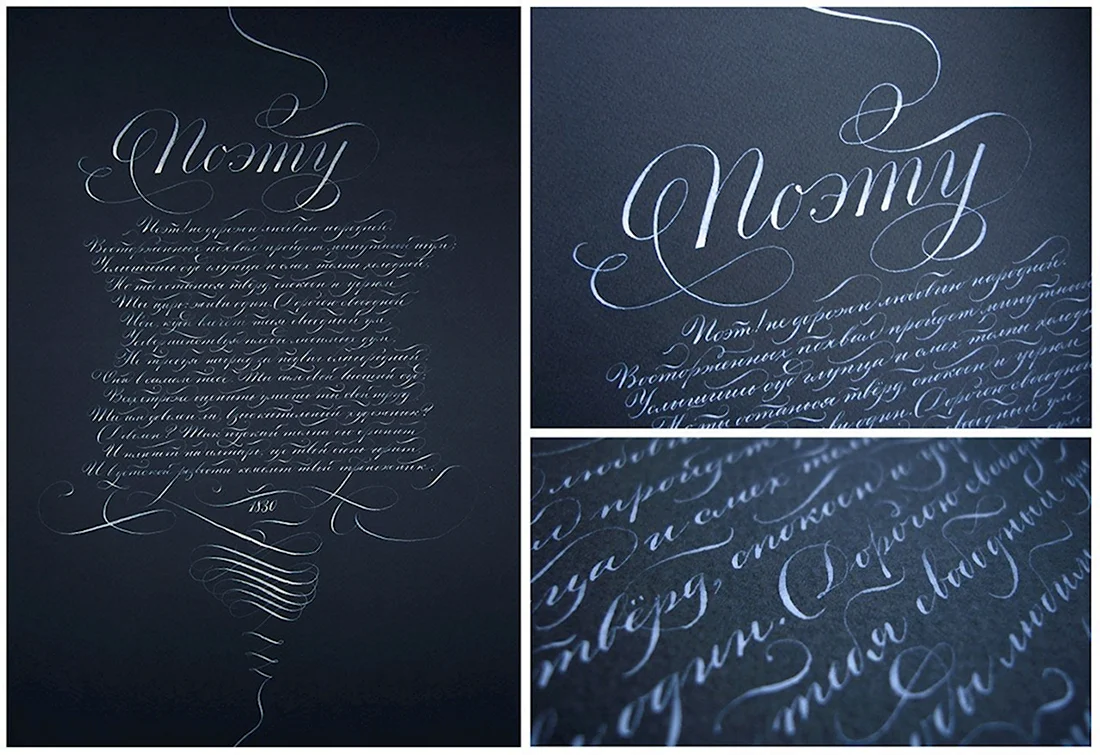 Поэту
Поэт! не дорожи любовию народной.
Восторженных похвал пройдет минутный шум;
Услышишь суд глупца и смех толпы холодной,
Но ты останься твёрд, спокоен и угрюм.
Ты царь: живи один. Дорогою свободной
Иди, куда влечет тебя свободный ум,
Усовершенствуя плоды любимых дум,
Не требуя наград за подвиг благородный.
Они в самом тебе. Ты сам свой высший суд;
Всех строже оценить умеешь ты свой труд.
Ты им доволен ли, взыскательный художник?
Доволен? Так пускай толпа его бранит
И плюет на алтарь, где твой огонь горит,
И в детской резвости колеблет твой треножник.
1830
Поэту
Поэт! не дорожи любовию народной.
Восторженных похвал пройдет минутный
Услышишь суд глупца и смех толпы холод
Но ты останься твёрд, спокоен и угрюм
ви один. Дорогою свободно
пройдет
и смех
твёрд, спокоен и
один. Дорогою свобод
тебя свободный ум
ды любим